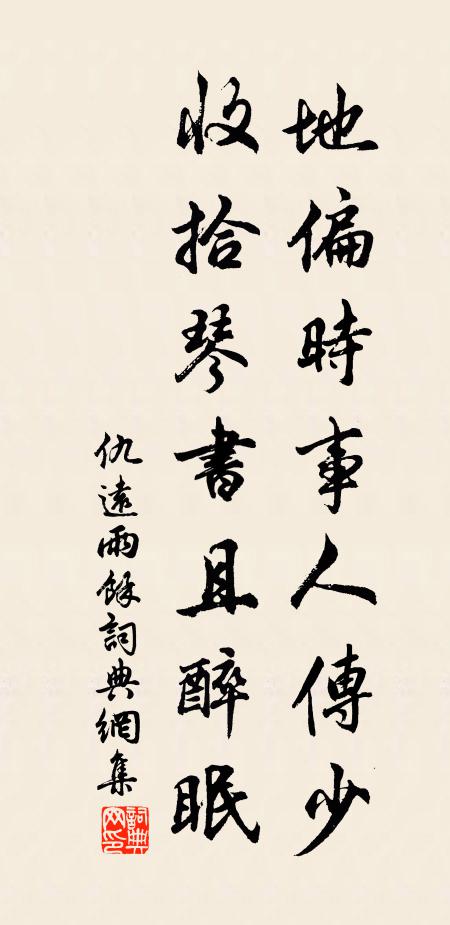 地偏時事人傳少
收拾琴書且醉眠
仇遠雨餘詞典網集
詞典網印